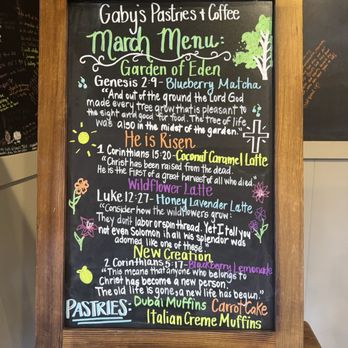 Gaby's Pastries & Coffee
March Menu:
Garden of Eden
Genesis 2:9 - Blueberry Matcha
"And out of the ground the Lord God
made every tree grow that is pleasant to
the sight and good for food. The tree of life
was also in the midst of the garden."
He is Risen
1 Corinthians 15:20 - Coconut Caramel Latte
"Christ has been raised from the dead.
He is the first of a great harvest of all who died"
Wildflower Latte
Luke 12:27 - Honey Lavender Latte
"Consider how the wildflowers grow:
They don't labor or spin thread. Yet I tell you
not even Solomon in all his splendor was
adorned like one of these."
New Creation
2 Corinthians 5:17 - Blackberry Lemonade
"This means that anyone who belongs to
Christ has become a new person.
The old life is gone; a new life has begun."
PASTRIES: Dubai Muffins Carrot Cake
Italian Creme Muffins